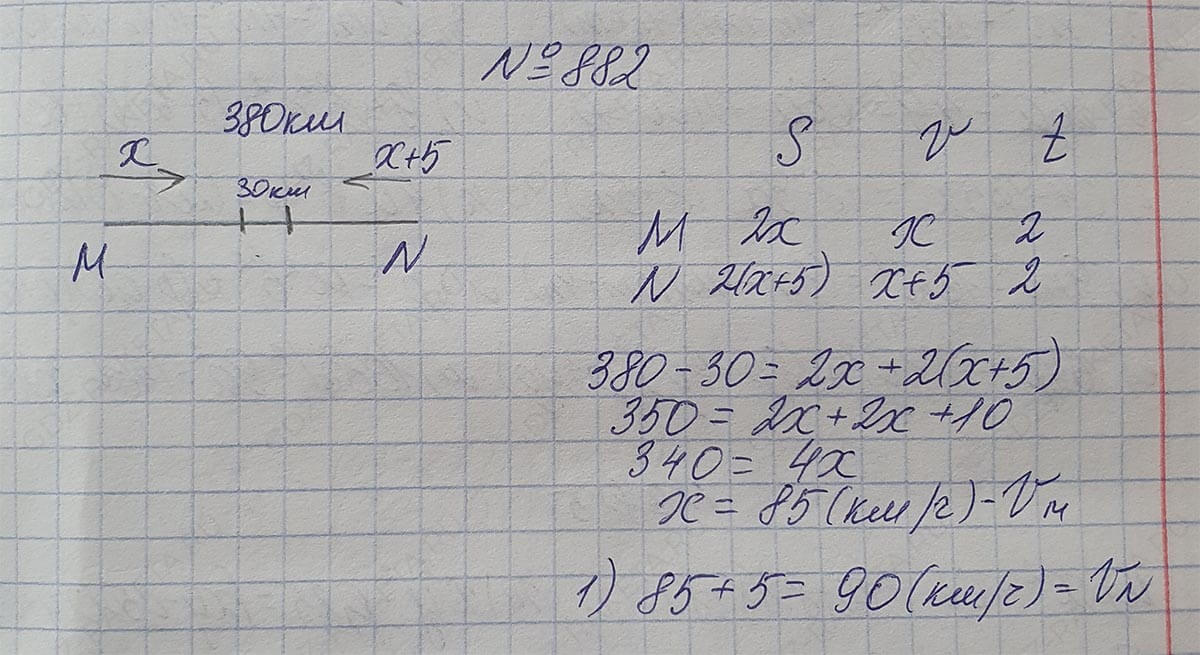 №882
380км
x x+5
30км
M N
S v t
M 2x x 2
N 2(x+5) x+5 2
380-30=2x+2(x+5)
350=2x+2x+10
340=4x
x=85(км/г)-Vм
1) 85+5=90(км/г)=VN